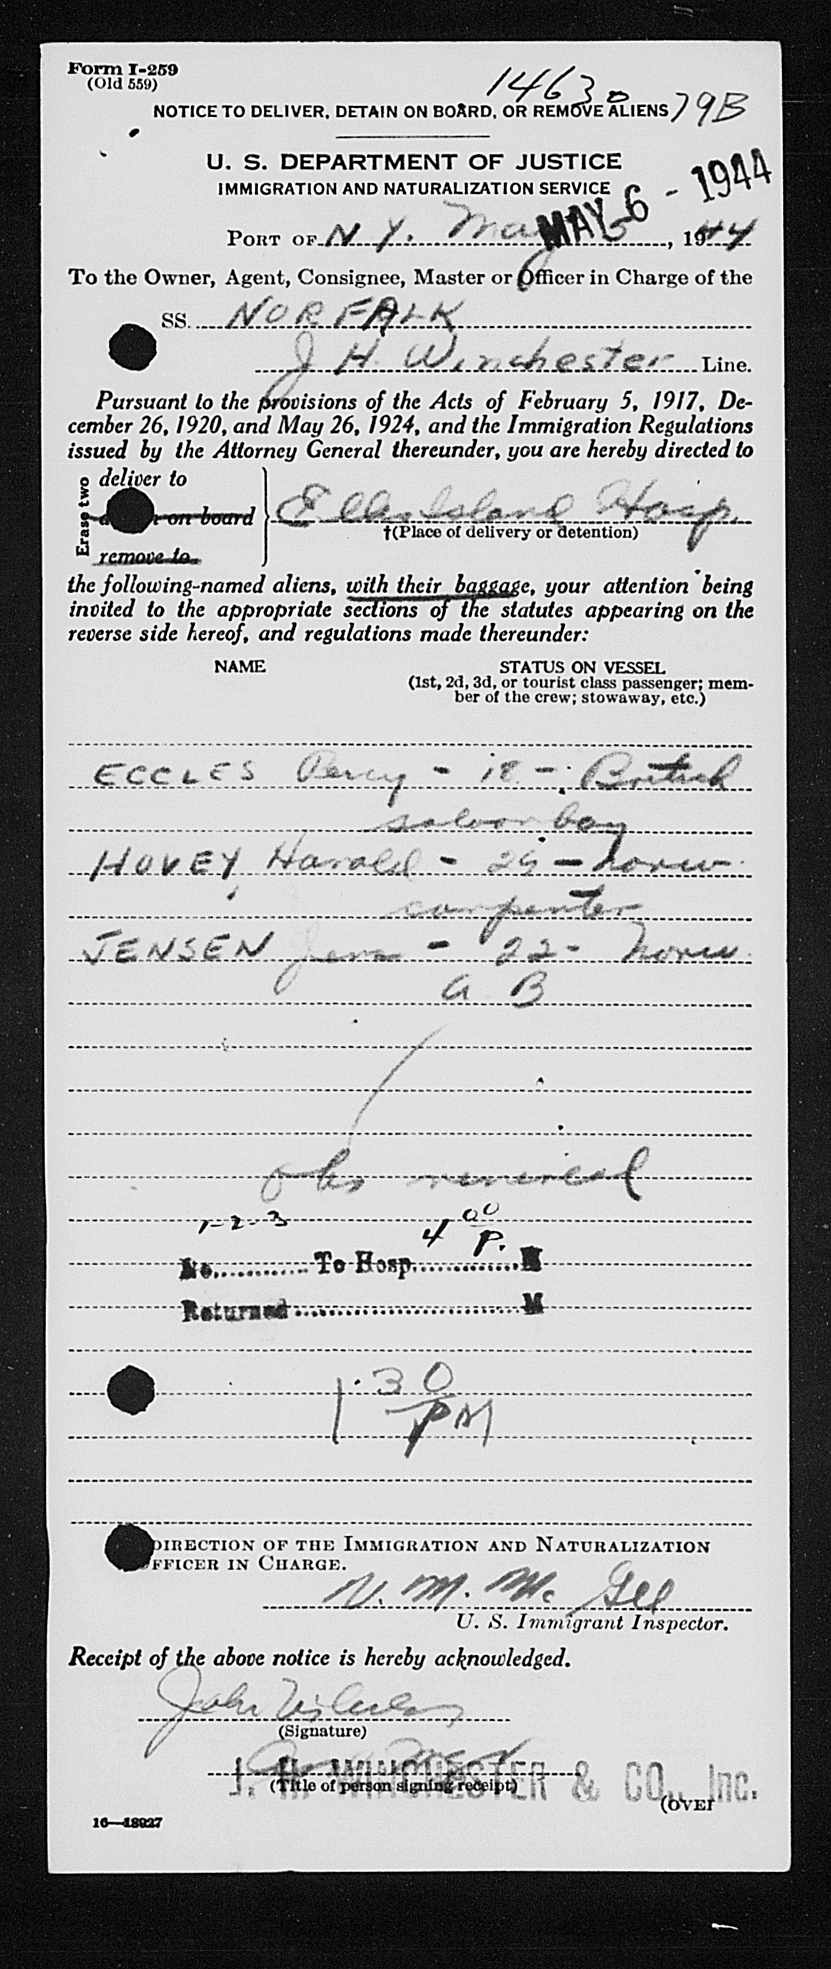 Form I-259
(Old 559)
1463
79B
NOTICE TO DELIVER, DETAIN ON BOARD, OR REMOVE ALIENS
U. S. DEPARTMENT OF JUSTICE
IMMIGRATION AND NATURALIZATION SERVICE
MAY 6 - 1944
PORT OF N Y. May 5, 1944
To the Owner, Agent, Consignee, Master or Officer in Charge of the
SS. NORFALK
J H. Winchester Line.
Pursuant to the provisions of the Acts of February 5, 1917, De-
cember 26, 1920, and May 26, 1924, and the Immigration Regulations
issued by the Attorney General thereunder, you are hereby directed to
Erase two
deliver to
on board
remove to
Ellis Island Hosp.
†(Place of delivery or detention)
the following-named aliens, with their baggage, your attention being
invited to the appropriate sections of the statutes appearing on the
reverse side hereof, and regulations made thereunder:
NAME STATUS ON VESSEL
(1st, 2d, 3d, or tourist class passenger; mem-
ber of the crew; stowaway, etc.)
ECCLES Percy - 18 - British
saloon boy
HOVEY Harald - 29 - norw.
carpenter
JENSEN Jens - 22 - norw.
a B
obs venereal
1-2-3 4 00 P.
No. To Hosp. M
Returned M
1:30
PM
DIRECTION OF THE IMMIGRATION AND NATURALIZATION
OFFICER IN CHARGE.
V. M. Mc Gee
U. S. Immigrant Inspector.
Receipt of the above notice is hereby acknowledged.
John
(Signature)
J. H. WINCHESTER & CO., Inc.
(Title of person signing receipt)
(OVER
16—18927